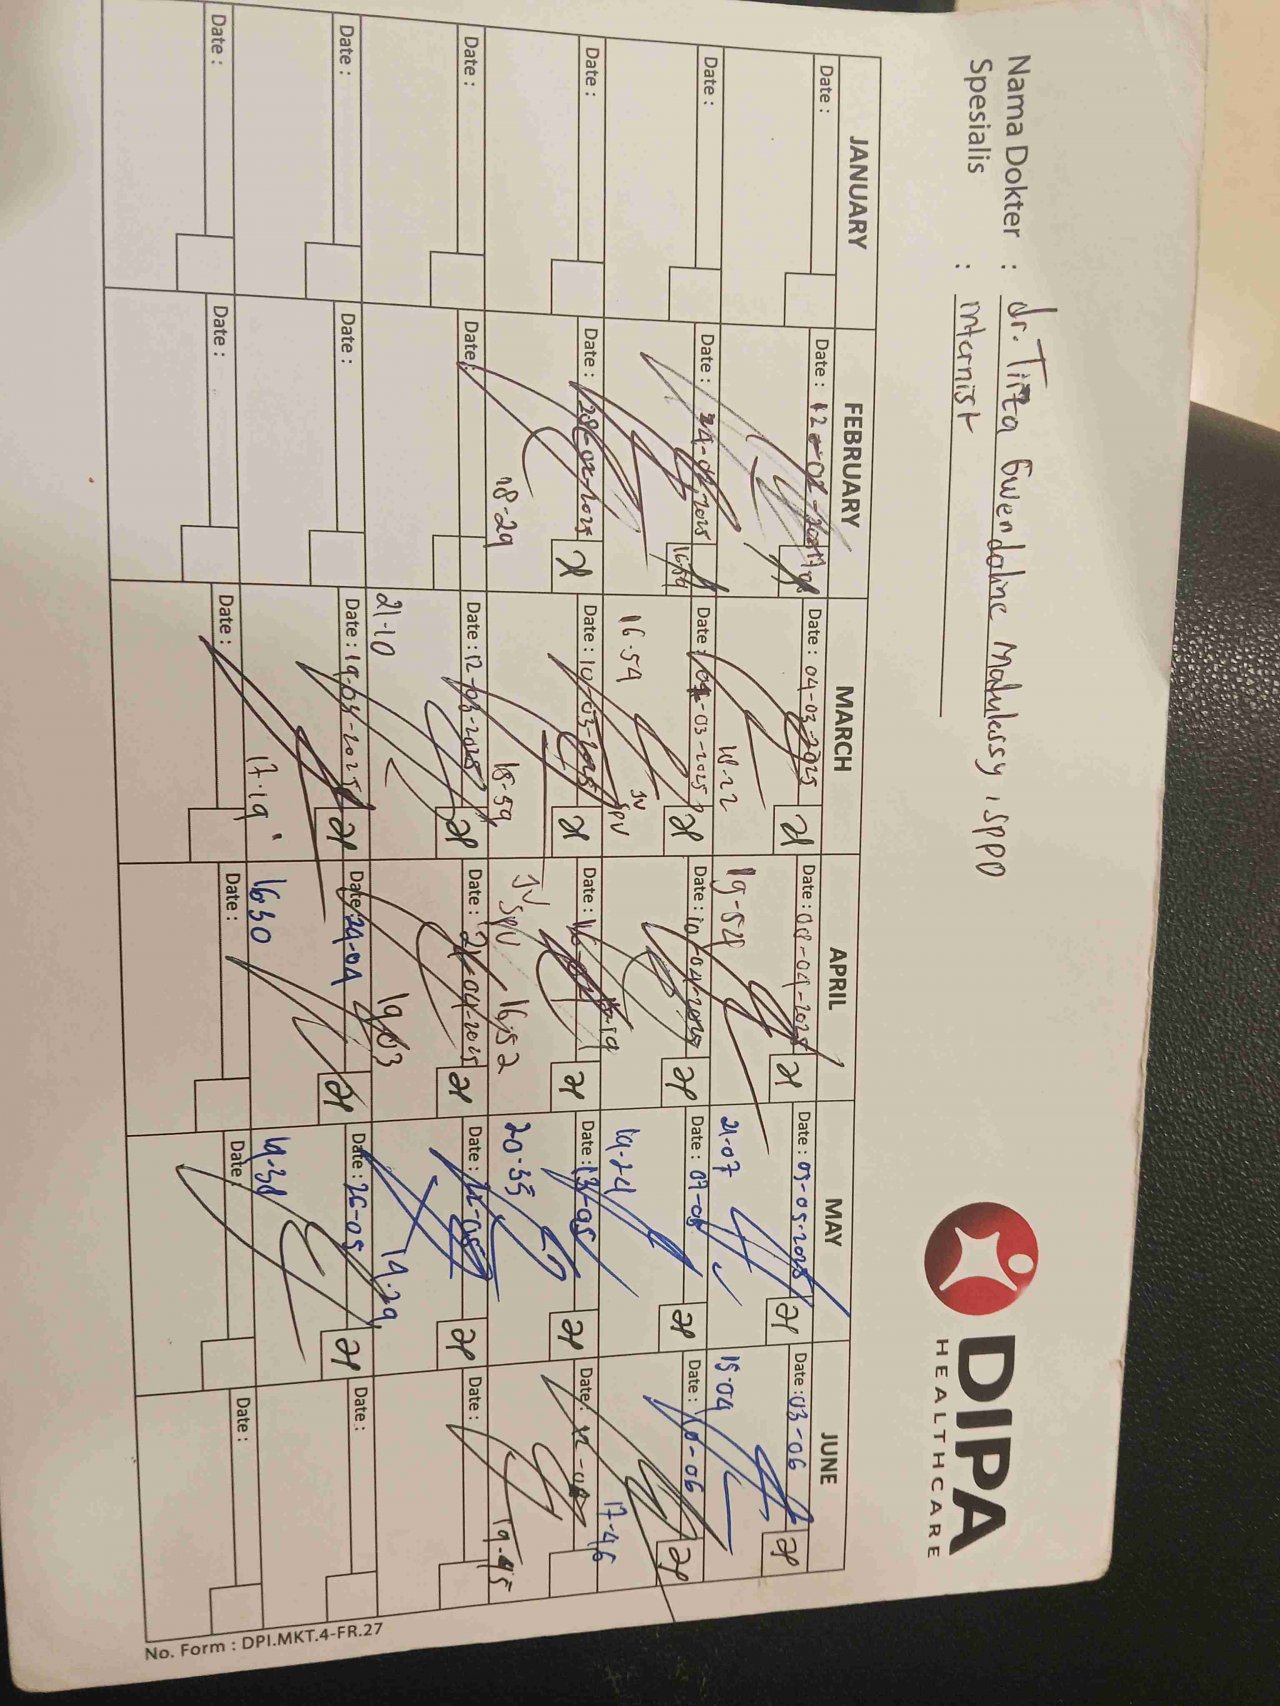 DIPA
HEALTHCARE
Nama Dokter : dr. Tirta Gwendoline Matulessy, SPPD
Spesialis : Internist
JANUARY FEBRUARY MARCH APRIL MAY JUNE
Date : Date : 12-02- Date : 04-03-2025 Date : 08-04-2025 Date : 03-05-2025 Date : 03-06
18-22 19-52 21-07 15-04
Date : Date : 24-02-2025 Date : 07-03-2025 Date : 10-04-2025 Date : 07-05 Date : 10-06
16:54 JV SPV 19-24 17-46
Date : Date : 28-02-2025 Date : 10-03-2025 Date : Date : 13-05 Date : 12-06
18-29 18-59 JV SPV 16:52 20-35 19-45
Date : Date : Date : 12-03-2025 Date : 21-04-2025 Date : Date :
21-10 19.03 19.29
Date : Date : Date : 19-03-2025 Date : 24-04 Date : 26-05 Date :
17.19 1630 19-38
Date : Date : Date : Date : Date : Date :
No. Form : DPI.MKT.4-FR.27